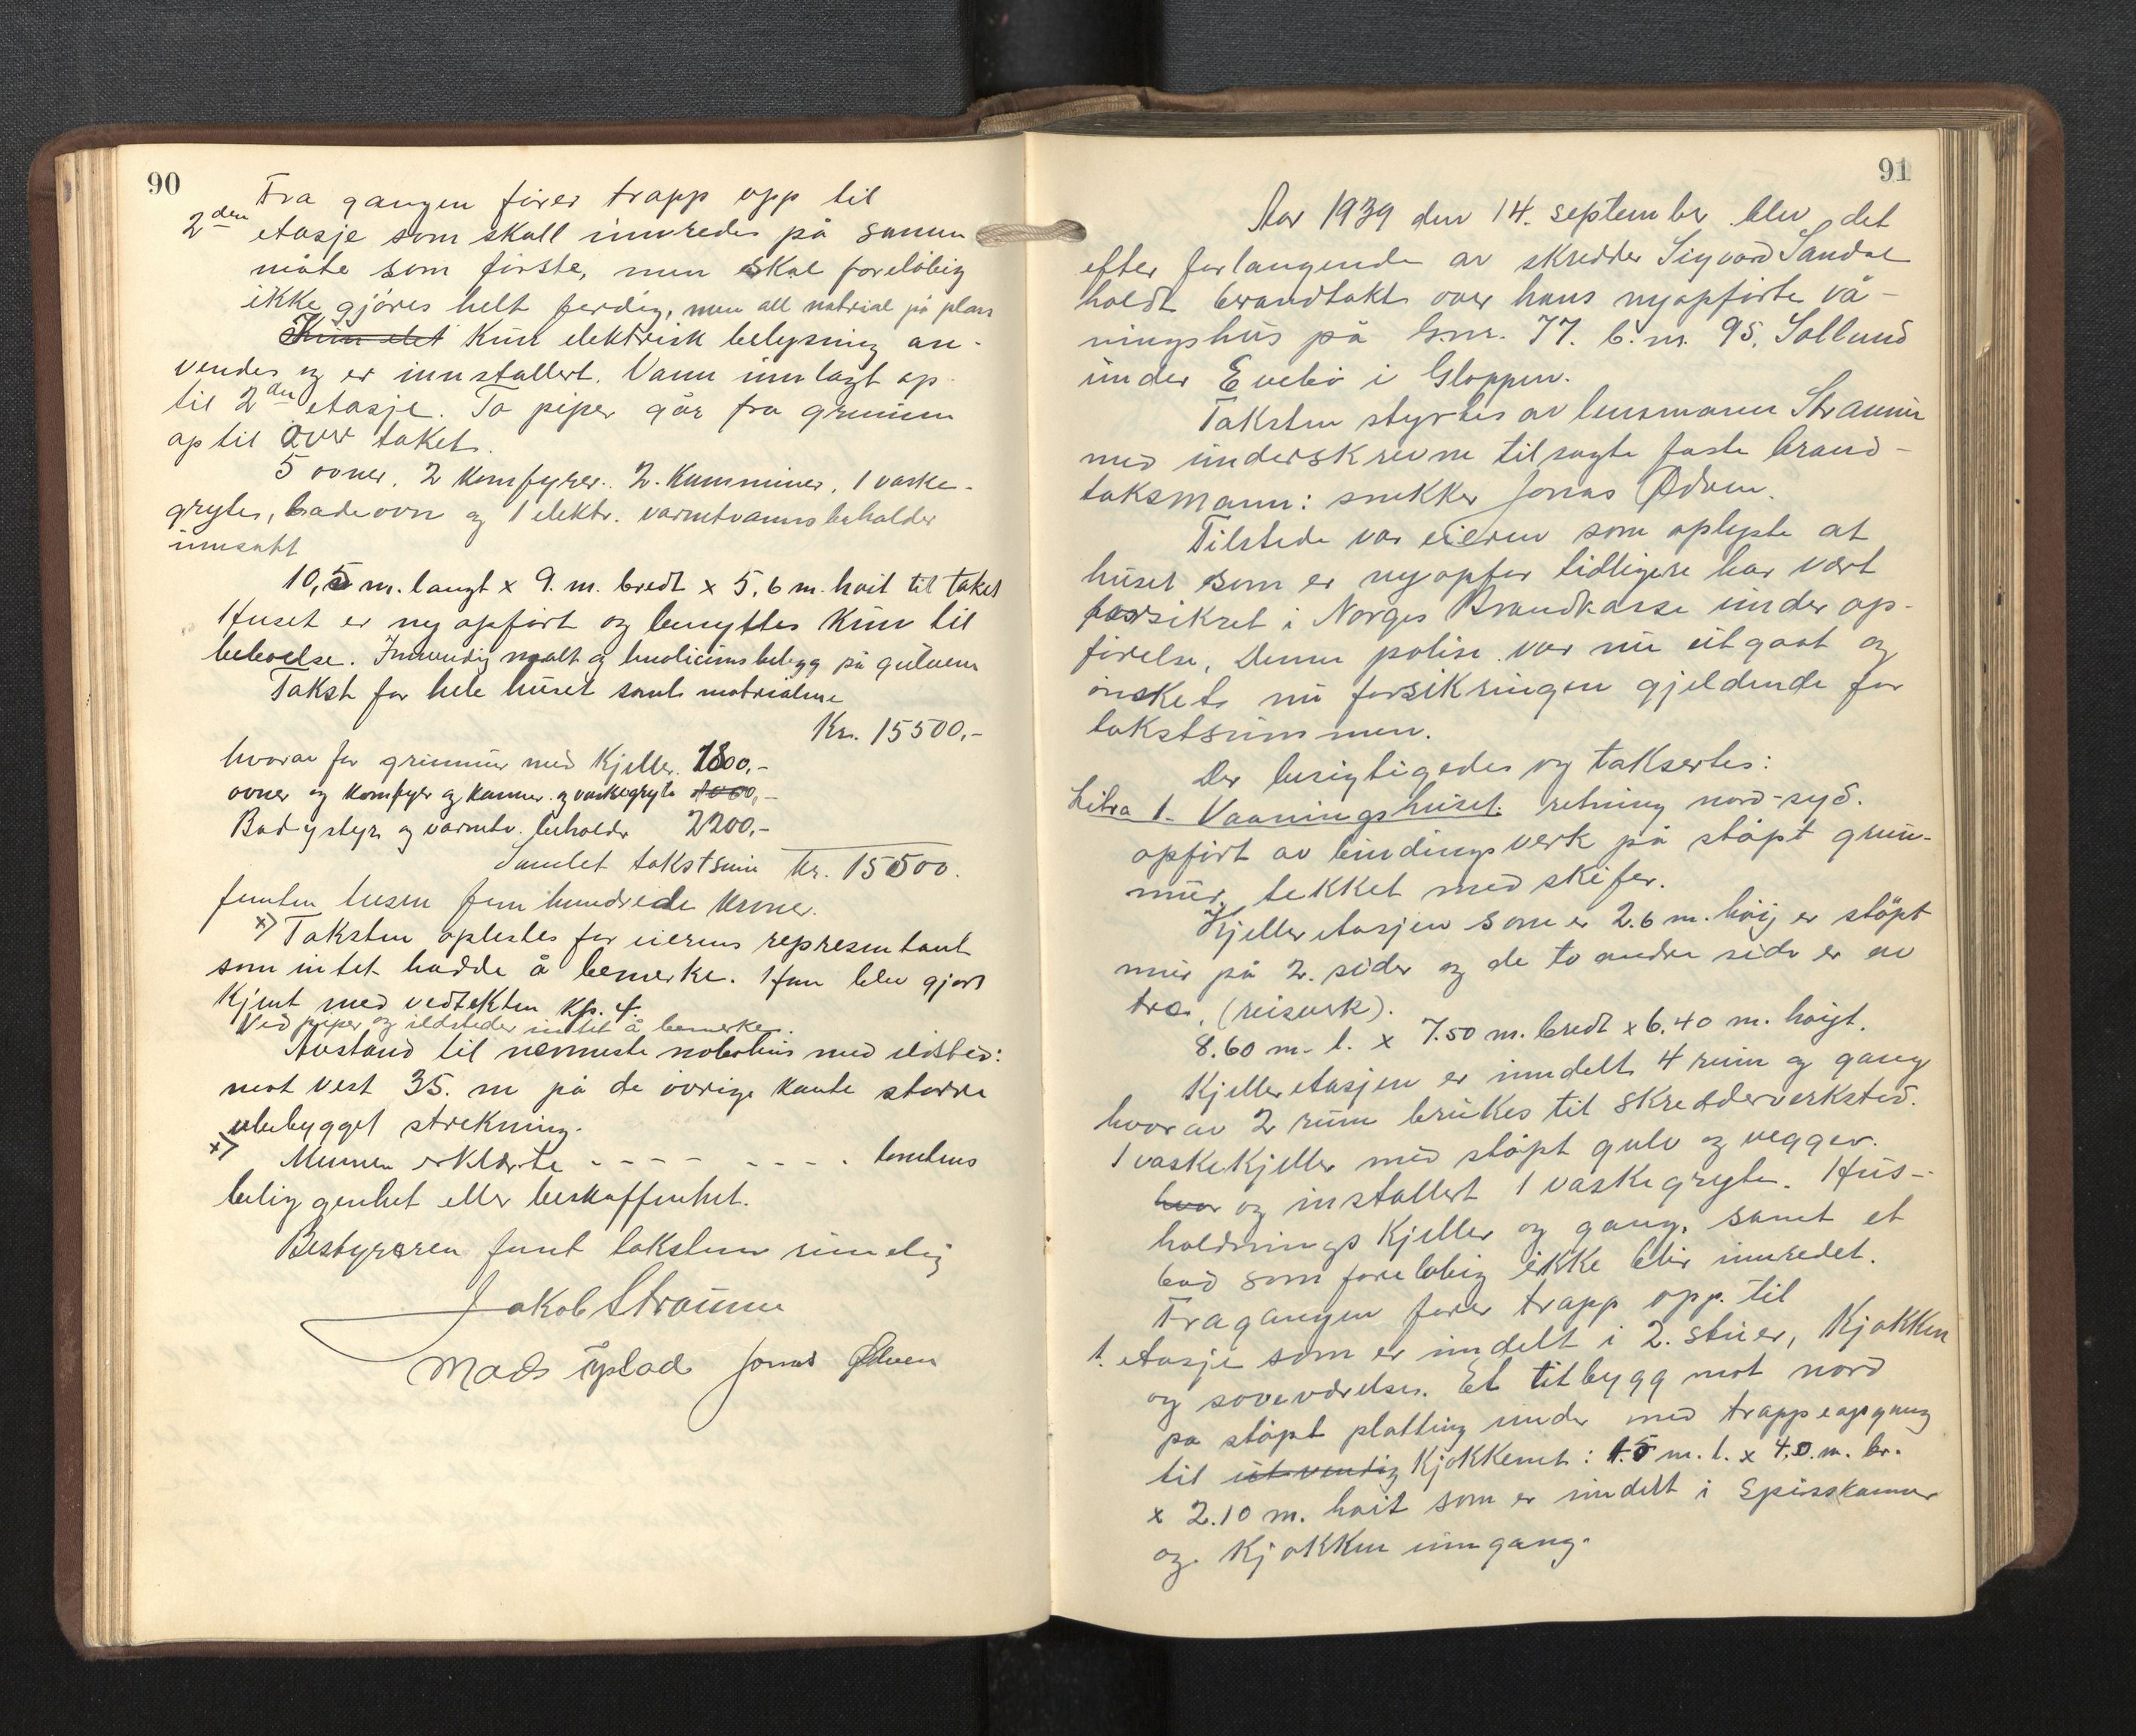 90
Fra gangen fører trapp opp til
2den etasje som skall innredes på samme
måte som første, men skal foreløbig
ikke gjøres helt ferdig, men all matrial på plass
Kun elet Kun elektrisk belysning an-
vendes og er innstallert. Vann innlagt op
til 2den etasje. To piper går fra grunnen
op til over taket.
5 ovner, 2 komfyrer. 2 Kamminer, 1 vaske-
gryte, badeovn og 1 elektr. varmtvannsbeholder
innsatt
10,5 m. langt x 9. m. bredt x 5,6 m. høit til taket
Huset er nyopført og benyttes kun til
beboelse. Innvendig malt og linolium belegg på gulvene
Takst for hele huset samt matrialene
Kr. 15500,-
hvorav for grunmur med Kjeller. 1800,-
ovner og komfyr og kammer. og vaskegryte 1000,-
Badeystyr og varmtv. beholder 2200,-
Samlet takstsum kr. 15500.
femten tusen fem hundrede kroner.
x) Taksten oplestes for eierens representant
som intet hadde å bemerke. Han blev gjort
kjent med vedtekten kp. 4.
Ved piper og ildsteder intet å bemerke.
Avstand til nermeste nabohus med ildsted:
mot vest 35. m på de øvrige kante større
ubebygget strekning.
x) Mennen erklærte - - - - - - - - . tomtens
beliggenhet eller beskaffenhet.
Bestyreren fant taksten rimelig
Jakob Straume
Mads Ryslad Jonas Ødven
91
Aar 1939 den 14. september blev det
efter forlangende av skredder Sigvard Sandal
holdt brandtakt over hans nyopførte vå-
ningshus på G.nr. 77. b.nr. 95, Sollund
under Evebø i Gloppen.
Taksten styrtes av lensmann Straume
med underskrevne tilsagte faste brand-
taksmann: snekker Jonas Ødven.
Tilstede var eieren som oplyste at
huset som er nyopfør tidligere har vært
forsikret i Norges Brandkasse under op-
førelse, Denne polise var nu utgaat og
ønsket nu forsikringen gjeldende for
takstsummen.
Der besigtigedes og taksertes:
Litra 1. Vaaningshuset. retning nord-syd.
opført av bindingsverk på støpt grun-
mur, tekket med skifer.
Kjelleretasjen som er 2.6 m. høi er støpt
mur på 2. sider og de to andre side er av
tre. (reisverk).
8.60 m. l. x 7.50 m. bredt x 6.40 m. høigt.
Kjelleretasjen er inndelt 4 rum og gang
hvorav 2 rum brukes til skredderverksted.
1 vaskekjeller med støpt gulv og vegger.
hvor og installert 1 vaskegryte. Hus-
holdnings Kjeller og gang, samt et
bad som foreløbig ikke blir innredet.
Fra gangen fører trapp opp. til
1. etasje som er inndelt i 2. stuer, Kjøkken
og soveværelse. Et tilbygg mot nord
på støpt platting under med trappeopgang
til utvendig Kjøkkenet: 1.5 m. l. x 4.0. m. br.
x 2.10 m. høit som er inndelt i Spisskammer
og Kjøkken inngang.